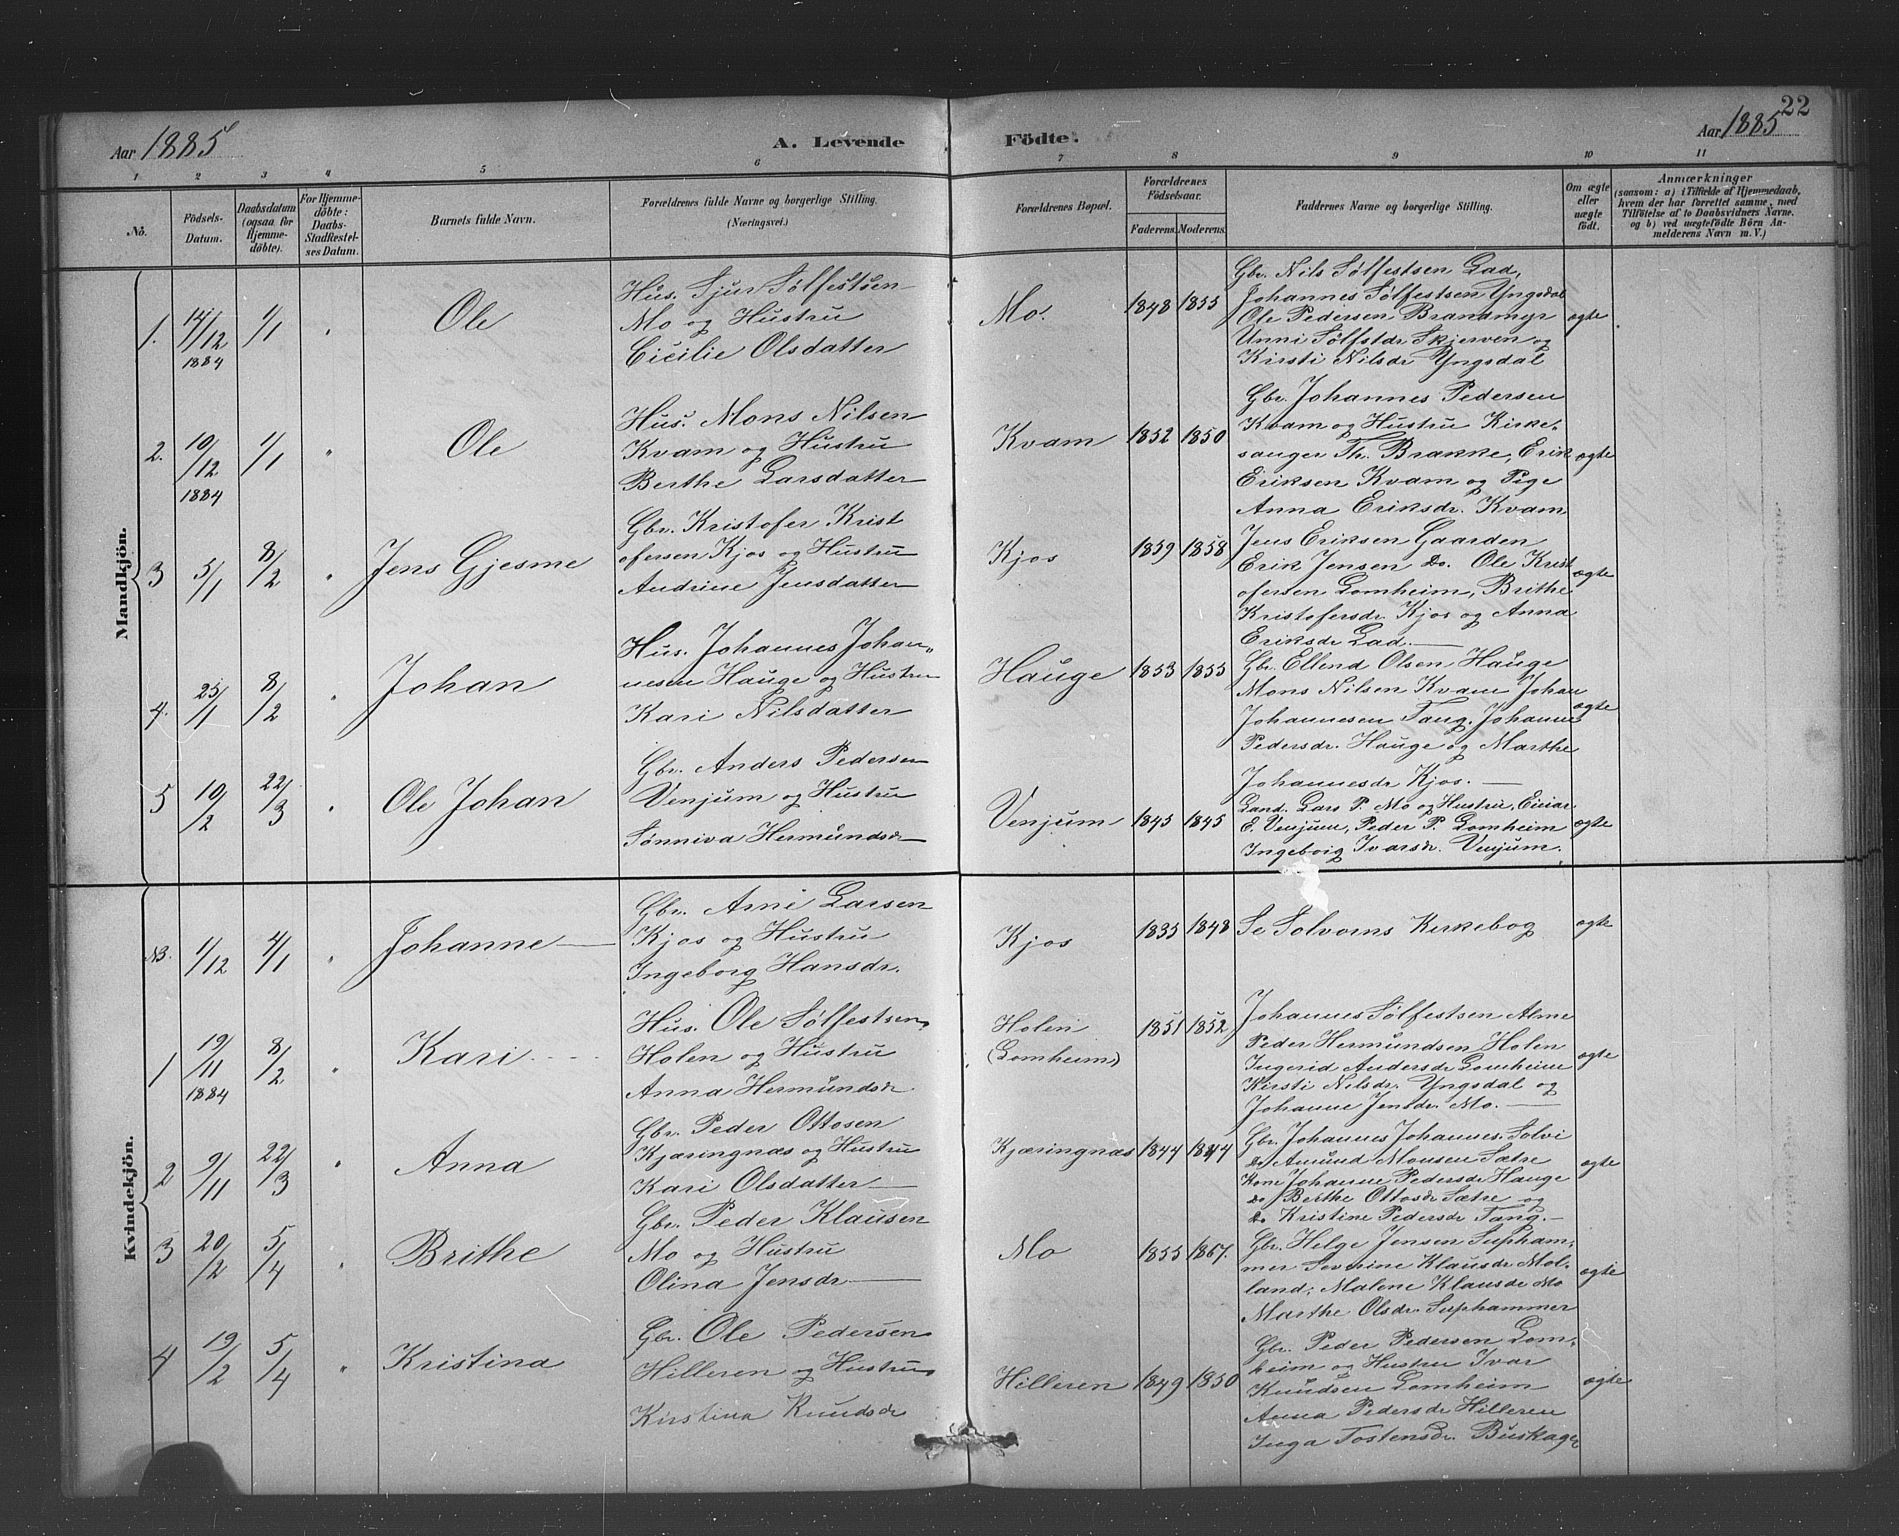 22
Aar 1885
A. Levende Födte.
Aar 1885
1 2 3 4 5 6 7 8 9 10 11
No.
Födsels-
Datum.
Daabsdatum
(ogsaa for
Hjemme-
döbte).
For Hjemme-
döbte:
Daabs-
Stadfæstel-
ses Datum.
Barnets fulde Navn.
Forældrenes fulde Navne og borgerlige Stilling.
(Næringsvei.)
Forældrenes Bopæl.
Forældrenes
Födselsaar.
Faderens. Moderens.
Faddernes Navne og borgerlige Stilling.
Om ægte
eller
uægte
födt.
Anmærkninger
(saasom: a) i Tilfælde af Hjemmedaab,
hvem der har forrettet samme, med
Tilföielse af to Daabsvidners Navne.
og b) ved uægtefödte Börn An-
melderens Navn m. V.)
Mandkjön.
1. 14/12 1884 1/1 " Ole
Hus. Sjur Sølfestsen
Mo og Hustru
Cicilie Olsdatter
Mo. 1848 1855
Gbr. Nils Sølfestsen Lad,
Johannes Sølfestsen Yngsdal
Ole Pedersen Brandmyr
Unni Sølfstdr. Skjerven og
Kirsti Nilsdr. Yngsdal
ægte
2. 10/12 1884 1/1 " Ole
Hus. Mons Nilsen
Kvam og Hustru
Berthe Larsdatter
Kvam 1852 1850
Gbr. Johannes Pedersen
Kvam og Hustru Kirke-
sanger Th. Brakke, Erik
Eriksen Kvam og Pige
Anna Eriksdr. Kvam
ægte
3 5/1 8/2 " Jens Gjesme
Gbr. Kristofer Krist
ofersen Kjos og Hustru
Andrine Jensdatter
Kjos 1859 1858
Jens Eriksen Gaarden
Erik Jensen Do. Ole Krist
ofersen Lomheim, Brithe
Kristofersdr. Kjos og Anna
Eriksdr Lad.
ægte
4. 25/1 8/2 " Johan
Hus. Johannes Johan-
nesen Hauge og Hustru
Kari Nilsdatter
Hauge 1853 1855
Gbr. Ellend Olsen Hauge
Mons Nilsen Kvam Johan
Johannesen Tang, Johanne
Pedersdr. Hauge og Marthe
Johannesdr Kjos.
ægte
5 10/2 22/3 " Ole Johan
Gbr. Anders Pedersen
Venjum og Hustru
Sønniva Hermundsdr
Venjum 1845 1845
Land. Lars P. Mo og Hustru, Einar
E. Venjum, Peder P. Lomheim
Ingeborg Ivarsdr. Venjum.
ægte
Kvindekjön.
NB. 1/12 4/1 " Johanne
Gbr. Arni Larsen
Kjos og Hustru
Ingeborg Hansdr.
Kjos 1835 1848
Se Solvorns Kirkebog
ægte
1 19/11 1884 8/2 " Kari
Hus. Ole Sølfestsen
Holen og Hustru
Anna Hermundsdr
Holen
(Lomheim) 1851 1852
Johannes Sølfestsen Alme
Peder Hermundsen Holen
Ingerid Andersdr Lomheim
Kirsti Nilsdr. Yngsdal og
Johanne Jensdr. Mo.
ægte
2 9/11 22/3 " Anna
Gbr. Peder Ottosen
Kjæringnæs og Hustru
Kari Olsdatter
Kjæringnæs 1844 1844
Gbr. Johannes Johannes. Solvi
Do Amund Monsen Sætre
Kone Johanne Pedersdr Hauge
Do Berthe Ottosdr Sætre og
Do Kristine Pedersdr Tang.
ægte
3 20/2 5/4 " Brithe
Gbr. Peder Klausen
Mo og Hustru
Olina Jensdr.
Mo 1855 1857.
Gbr. Helge Jensen Supham-
mer Severine Klausdr Mol-
land; Malene Klausdr Mo
Marthe Olsdr. Suphammer
ægte
4 19/2 5/4 " Kristina
Gbr. Ole Pedersen
Hilleren og Hustru
Kirstina Knudsdr
Hilleren 1849 1850
Gbr. Peder Pedersen Lom-
heim og Hustru Ivar
Knudsen Lomheim
Anna Pedersdr Hilleren
Inga Tostensdr. Buskager
ægte